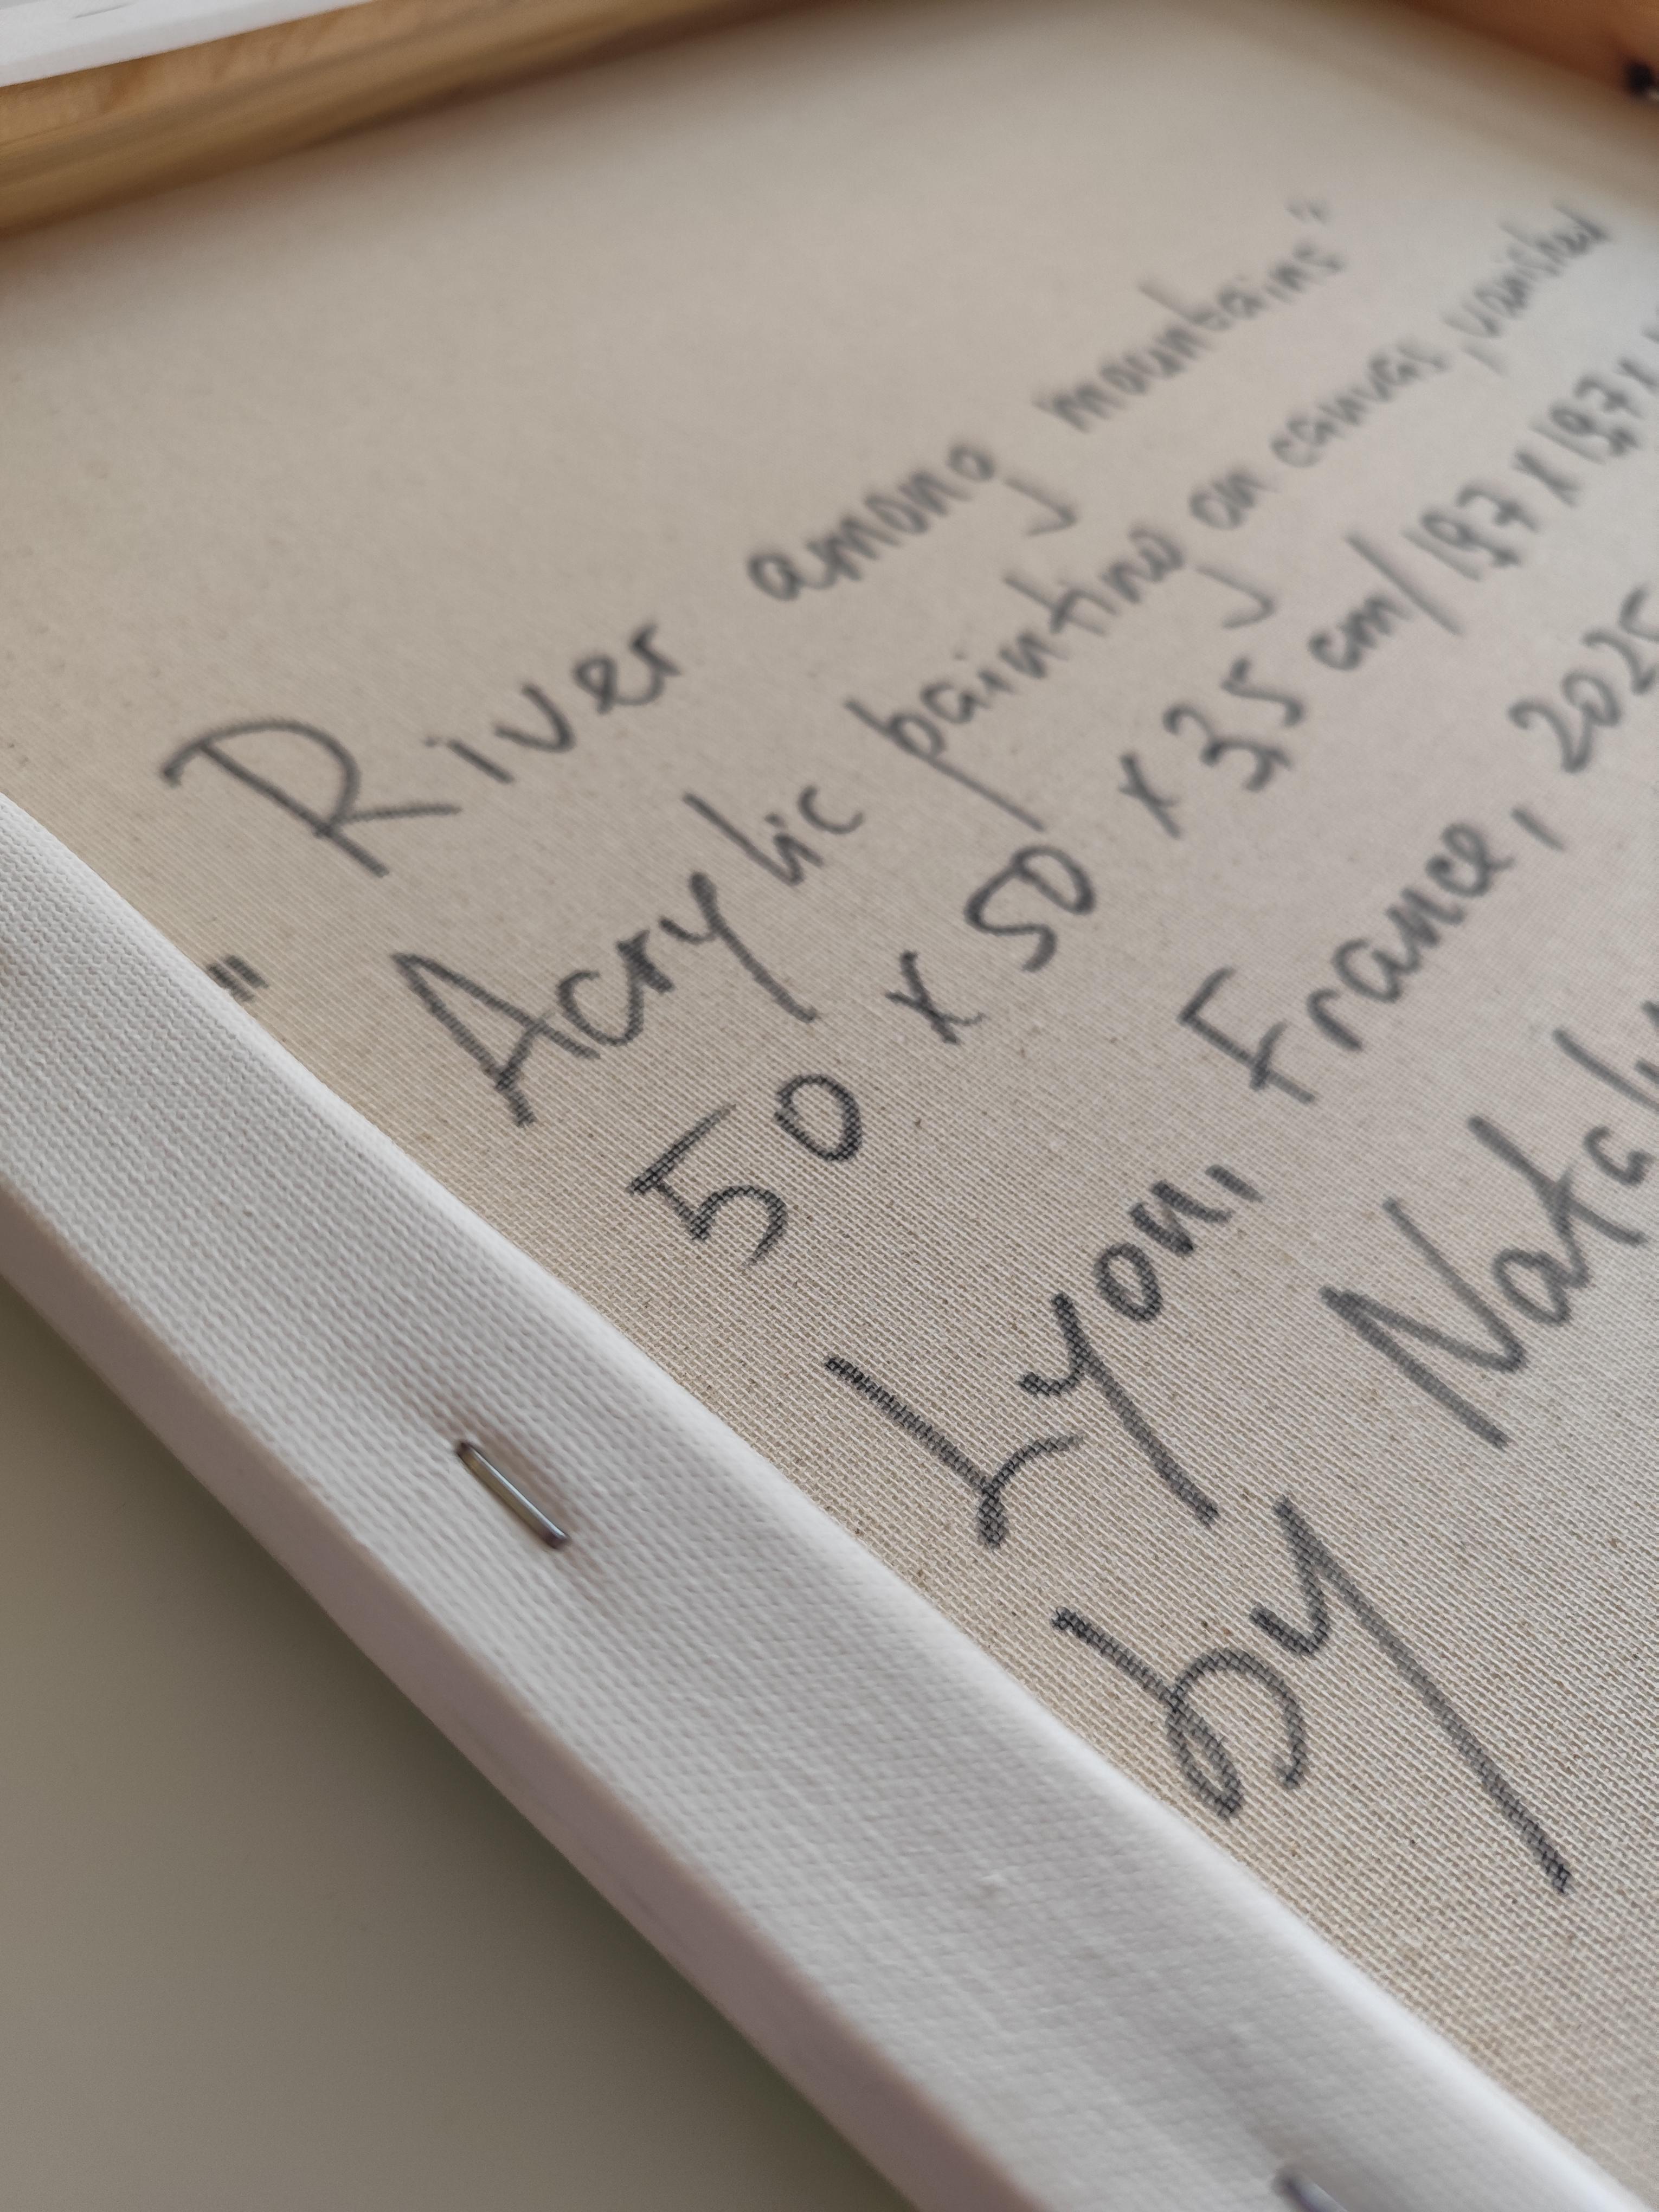 "River among mountains"
Acrylic painting on canvas, vanished
50 x 50 x 3,5 cm/19,7 x 19,7 x
Lyon, France, 2025
by Nataly